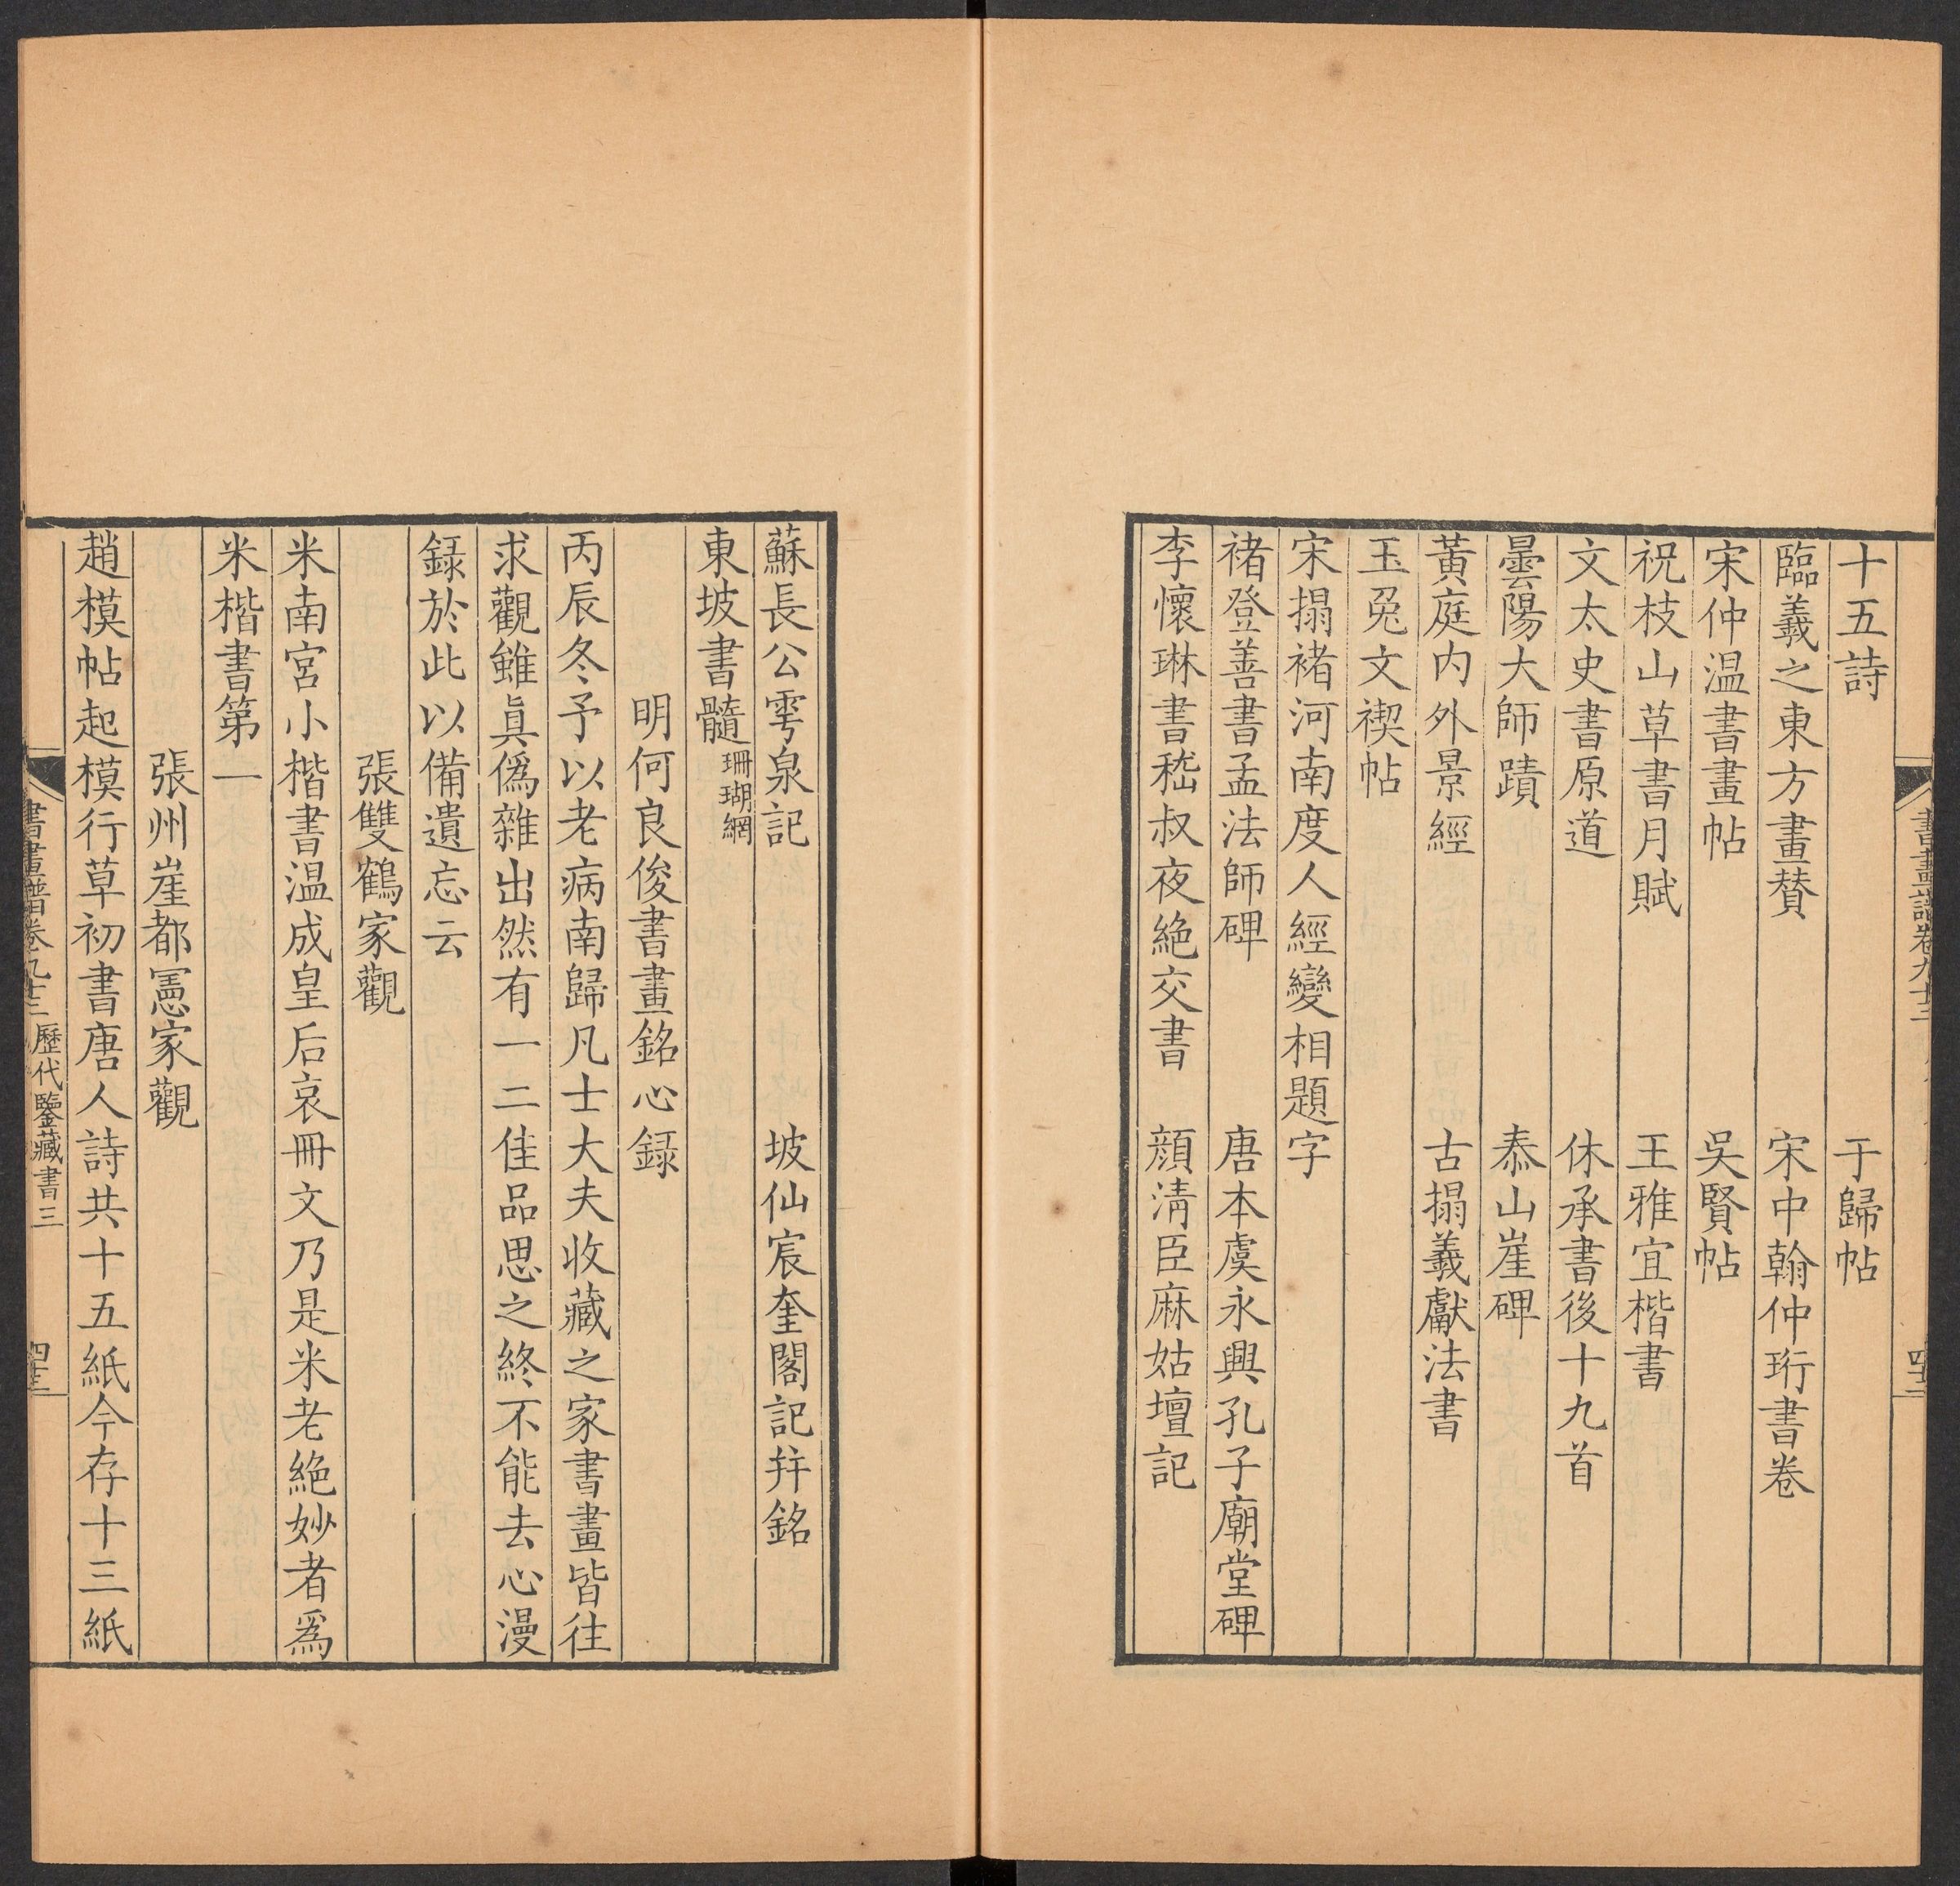 十五詩　于歸帖
臨羲之東方畫賛　宋中翰仲珩書卷
宋仲温書畫帖　吳賢帖
祝枝山草書月賦　王雅宜楷書
文太史書原道　休承書後十九首
曇陽大師蹟　泰山崖碑
黃庭内外景經　古搨羲獻法書
玉兎文禊帖
宋搨褚河南度人經變相題字
褚登善書孟法師碑　唐本虞永興孔子廟堂碑
李懷琳書嵇叔夜絶交書　顔淸臣麻姑壇記
書畫譜卷九十三
四十二
蘇長公雩泉記　坡仙宸奎閣記幷銘
東坡書髓珊瑚網
明何良俊書畫銘心録
丙辰冬予以老病南歸凡士大夫收藏之家書畫皆往
求觀雖眞僞雜出然有一二佳品思之終不能去心漫
録於此以備遺忘云
張雙鶴家觀
米南宮小楷書温成皇后哀冊文乃是米老絶妙者爲
米楷書第一
張州崖都憲家觀
趙模帖起模行草初書唐人詩共十五紙今存十三紙
書畫譜卷九十三　歷代鑒藏書三
四十三